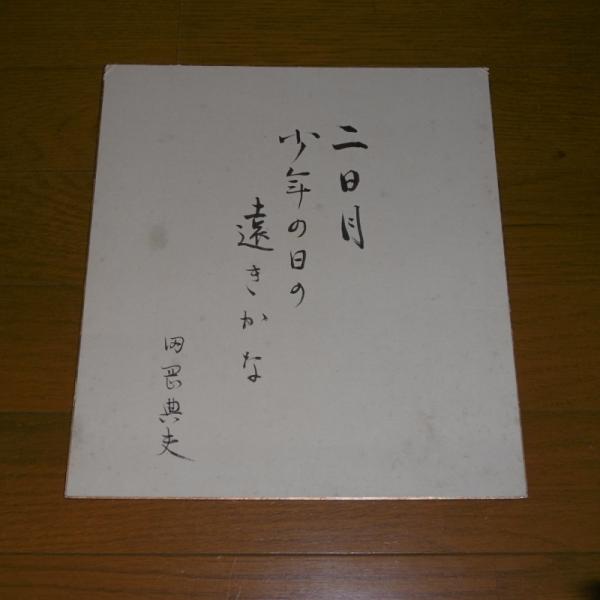 二日月
少年の日の
遠きかな
田岡典夫